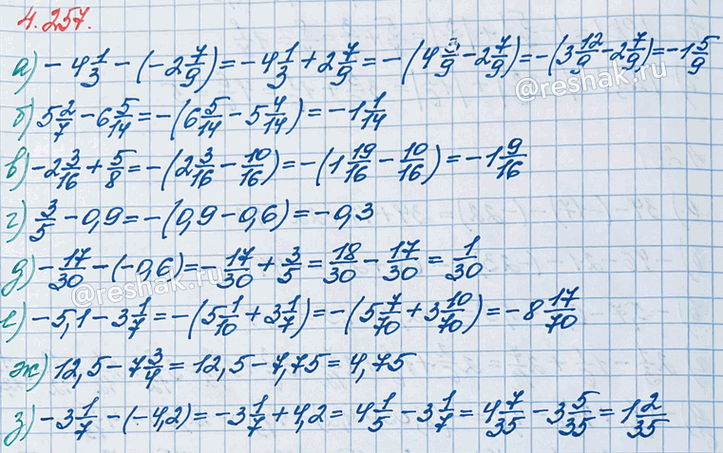 4.257.
а) -4 1/3 - (-2 7/9) = -4 1/3 + 2 7/9 = -(4 3/9 - 2 7/9) = -(3 12/9 - 2 7/9) = -1 5/9
б) 5 2/7 - 6 5/14 = -(6 5/14 - 5 4/14) = -1 1/14
в) -2 3/16 + 5/8 = -(2 3/16 - 10/16) = -(1 19/16 - 10/16) = -1 9/16
г) 3/5 - 0,9 = -(0,9 - 0,6) = -0,3
д) -17/30 - (-0,6) = -17/30 + 3/5 = 18/30 - 17/30 = 1/30
е) -5,1 - 3 1/7 = -(5 1/10 + 3 1/7) = -(5 7/70 + 3 10/70) = -8 17/70
ж) 12,5 - 7 3/4 = 12,5 - 7,75 = 4,75
з) -3 1/7 - (-4,2) = -3 1/7 + 4,2 = 4 1/5 - 3 1/7 = 4 7/35 - 3 5/35 = 1 2/35
@reshak.ru
@reshak.ru